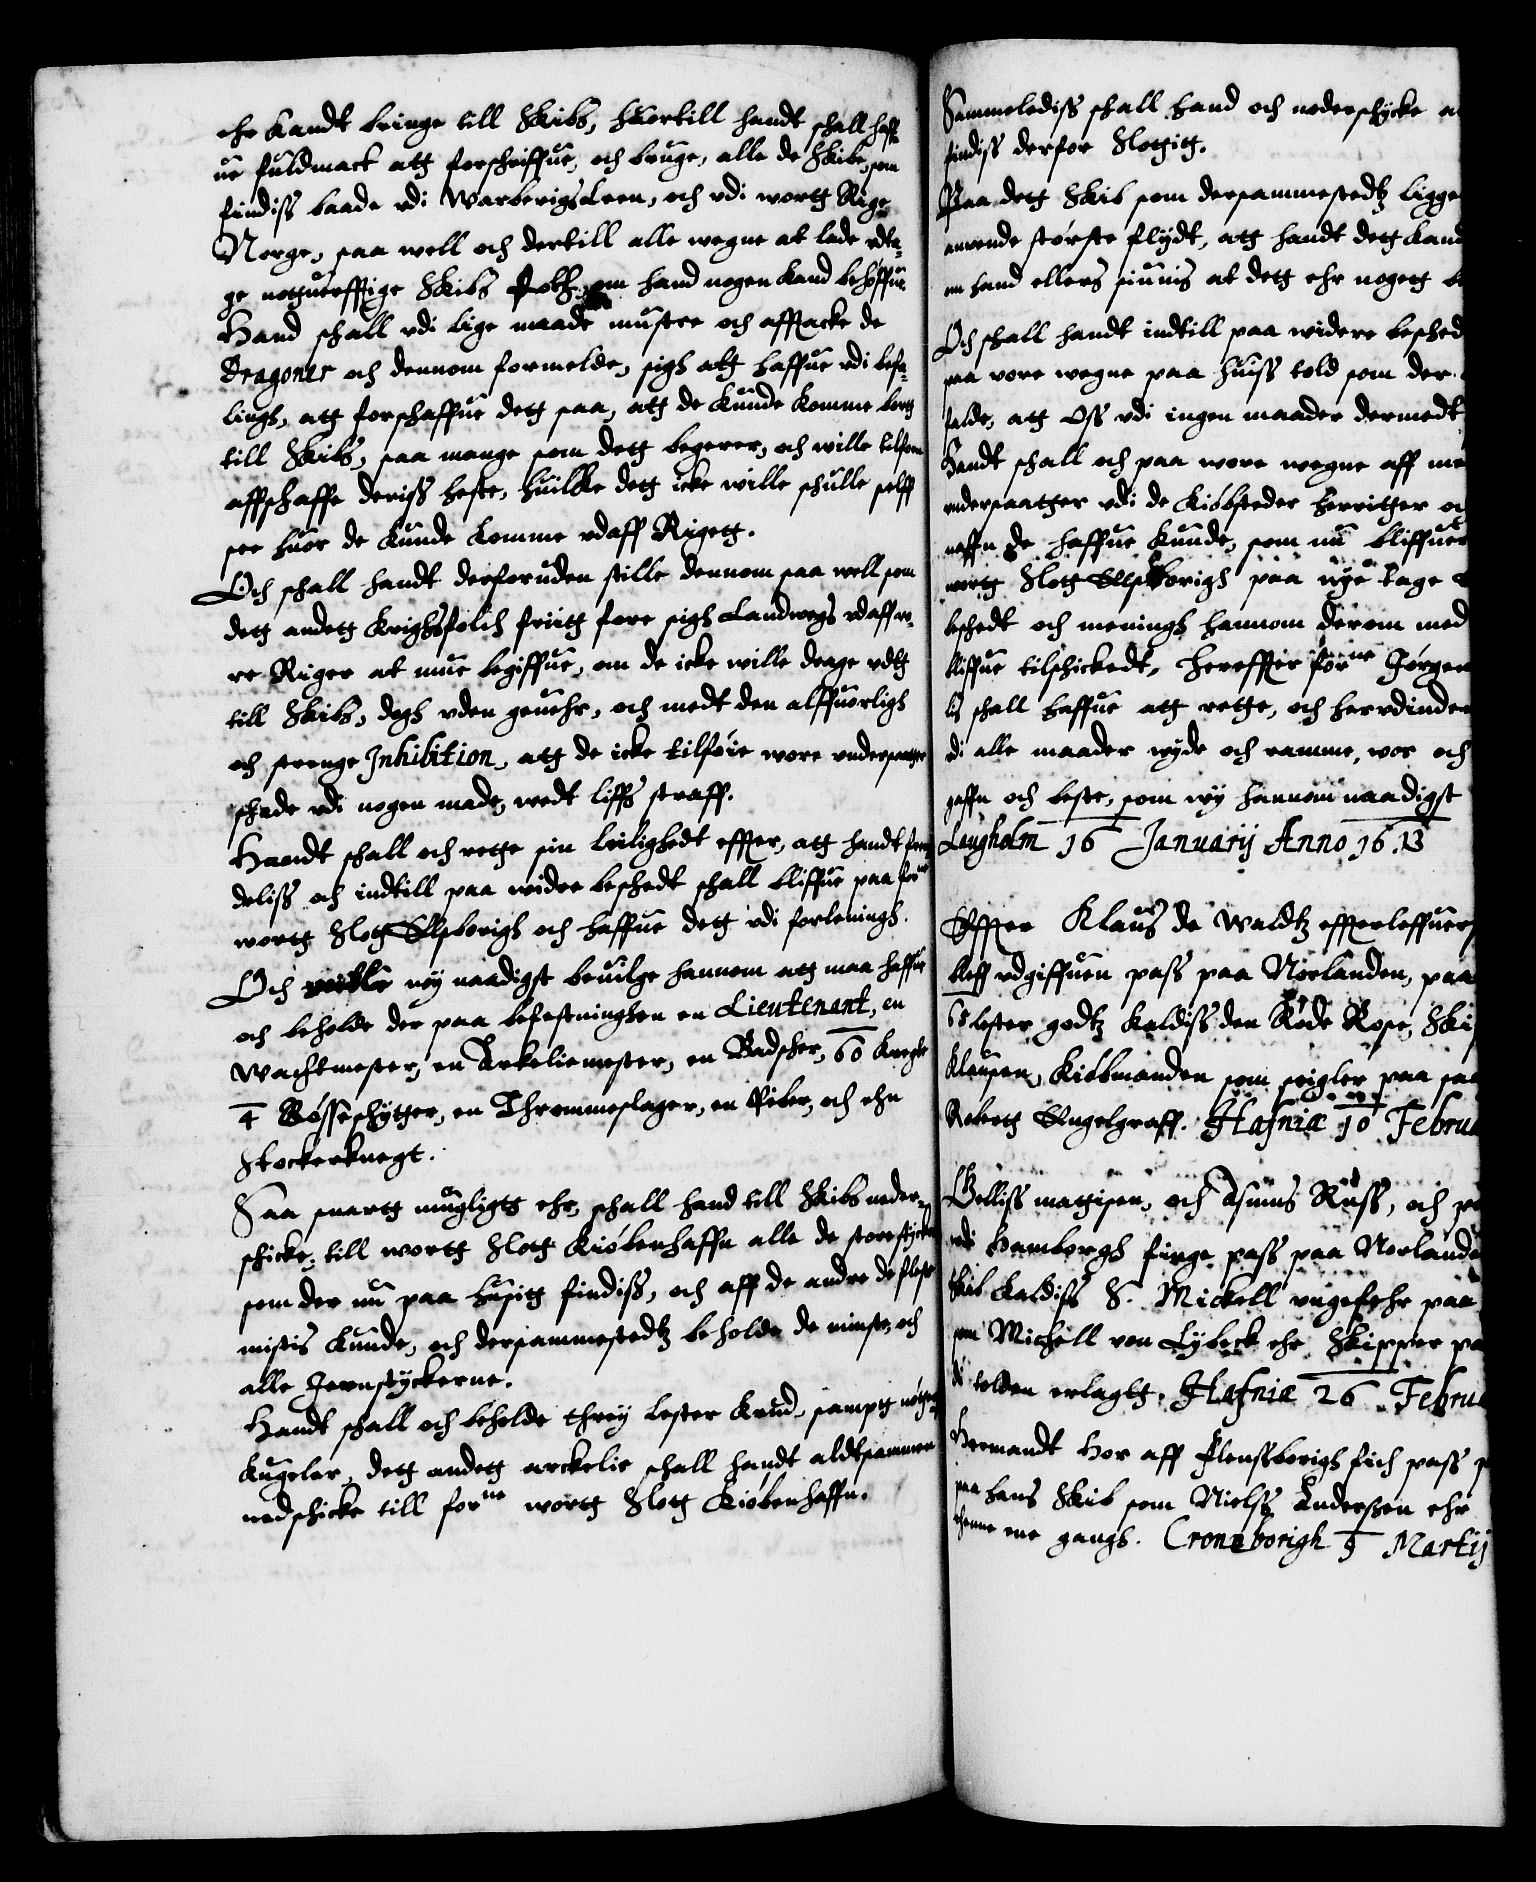 ehr kandt bringe till Skibs, huortill handt schall haff-
ue fuldmact att forschriffue, och bruge, alle de Skibe, som
findiss baade vdi Warberigs Leen, och vdi wortt Rige
Norge, saa well och dertill alle wegne at lade vdta-
ge nottuerfftige Skibs folk, om hand nogen kand behøffue.
Hand schall vdi lige maade mustre och afftacke de
Dragoner och dennom formelde, sigh att haffue vdi befa-
lingh, att forschaffue dett saa, att de kunde komme bortt
till Skibs, saa mange som dett begerer, och wille tilforn
affschaffe deriss heste, huilcke dett icke wille schulle selff
see huor de kunde komme vdaff Rigett.
Och schall handt derforuden stille dennom saa well som
dett andett krighsfolch friitt fore sigh Landwegs vdaff wo-
re Riger at mue begiffue, om de icke wille drage vdtt
till Skibs, dogh vden geuehr, och medt den alffuorligh
och strenge Inhibition, att de icke tilføie wore vndersaatter
schade vdi nogen made, wedt liffs straff.
Handt schall och rette sin leilighedt effter, att handt frem-
deliss och indtill paa widre beschedt schall bliffue paa forne
wortt Slott Elsborigh och haffue dett vdi forleningh.
Och wille wy naadigst beuilge hannom att maa haffue
och beholde der paa befestninghen en Lieutenant, en
Wachtmester, en Arkeliemester, en Badscher, 60 knegte
4 Bøsseschytter, en Thrommeslager, en Piber, och ehn
Stockerknegt.
Saa snartt mugligtt ehr, schall hand till Skibs neder-
schicke, till wortt Slott Kiøbenhaffn alle de store stycker
som der nu paa husitt findiss, och aff de andre de fleste
mistis kunde, och dersammestedtz beholde de minste, och
alle Jernstyckerne.
Handt schall och beholde threy lester krud, sampt nøttige
kugeler, dett andett arckelie schall handt aldtsammen
nedschicke till forne wortt Slott Kiøbenhaffn.
Sammelediss schall hand och nederschicke
findiss derfor Slottitt.
Paa dett Skib som dersammestedtz ligge
anwende største flydt, att handt dett kand
hand ellers siunis at dett ehr nogett
Och schall handt indtill paa widere besched
paa vore wegne paa huiss told som der
falde, att Oss vdi ingen maader dermedt
Handt schall och paa wore wegne aff
vndersaatter vdi de Kiøbsteder herritter och
naffn de haffue kunde, som nu bliffuer
wortt Slott Elsborigh paa nye tage
beschedt och meningh hannom derom med
bliffue tilschickedt, Hereffter forne Jørgen
schall haffue att rette, och herudinden
vdi alle maader wyde och ramme, vor och
gaffn och beste, som wy hannom naadigst
Laugholm 16 Januarij Anno 1613
Effter Klaus de Waldtz effterleffuers
bleff vdgiffuen pass paa Norlanden, paa
68 lester godtz kaldiss den Røde Rose, Ski
Klausen, Kiøbmanden som seigler paa
Robertt Engelgraff. Hafniæ 10 Februa
Gelliss mattisen, och Asmus Russ, och
vdi Hamborgh finge pass paa Norlande
Skib kaldiss S. Mickell vngefehr paa
Michell von Lybeck ehr Skipper pa
tolden erlagtt. Hafniæ 26 Februa
Hermandt Hor aff Flenssborigh fich pass
paa hans Skib som Nielss Anderssen ehr
ene gangh. Croneborigh 9 Martij